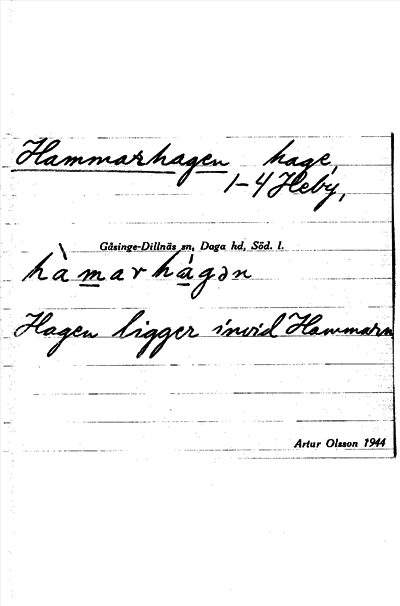 Hammarhagen hage,
1-4 Heby,
Gåsinge-Dillnäs sn, Daga hd, Söd. l.
hàmarhágən
Hagen ligger invid Hammarn
Artur Olsson 1944